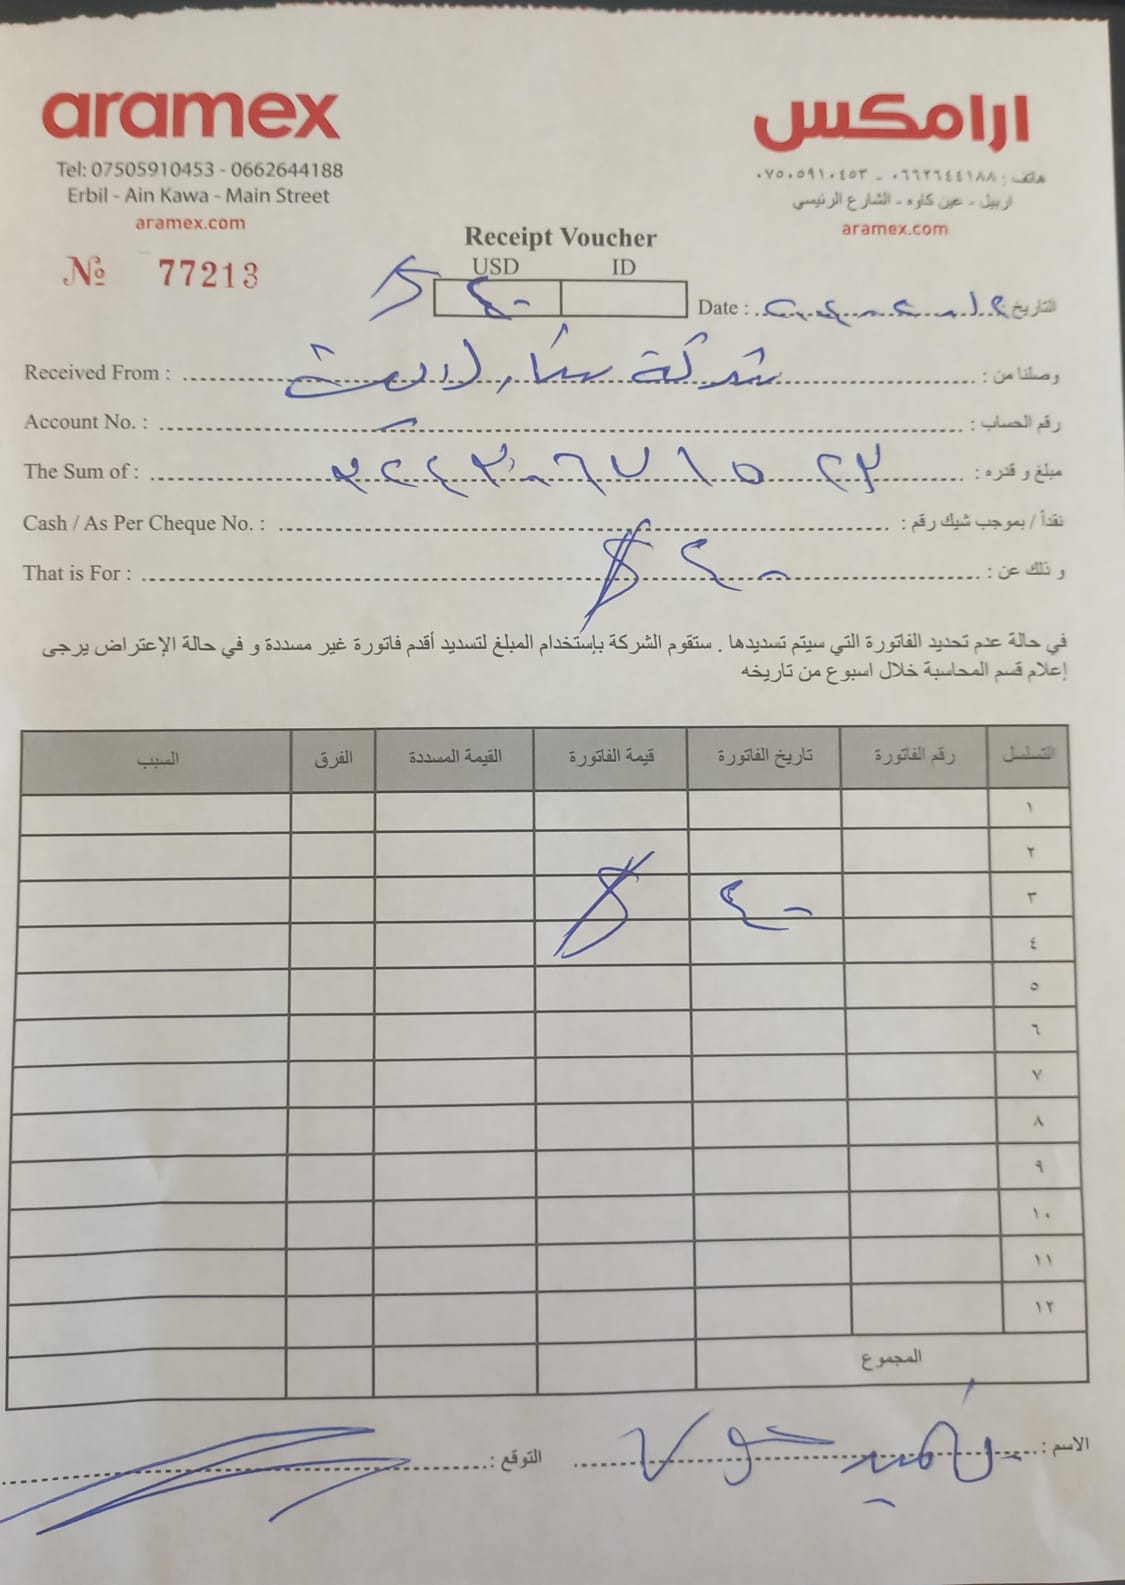 aramex
ارامكس
Tel: 07505910453 - 0662644188
هاتف : ٠٦٦٢٦٤٤١٨٨ - ٠٧٥٠٥٩١٠٤٥٣
Erbil - Ain Kawa - Main Street
اربيل - عين كاوه - الشارع الرئيسي
aramex.com
aramex.com
Receipt Voucher
№ 77213
USD ID
$ ٤٠
Date : التاريخ
Received From : شركة ستار لايت وصلنا من :
Account No. : رقم الحساب :
The Sum of : مبلغ و قدره :
Cash / As Per Cheque No. : نقداً / بموجب شيك رقم :
That is For : $ ٤٠ و ذلك عن :
في حالة عدم تحديد الفاتورة التي سيتم تسديدها . ستقوم الشركة بإستخدام المبلغ لتسديد أقدم فاتورة غير مسددة و في حالة الإعتراض يرجى
إعلام قسم المحاسبة خلال اسبوع من تاريخه
التسلسل رقم الفاتورة تاريخ الفاتورة قيمة الفاتورة القيمة المسددة الفرق السبب
١
٢
٣ $ ٤٠
٤
٥
٦
٧
٨
٩
١٠
١١
١٢
المجموع
الاسم : التوقع :